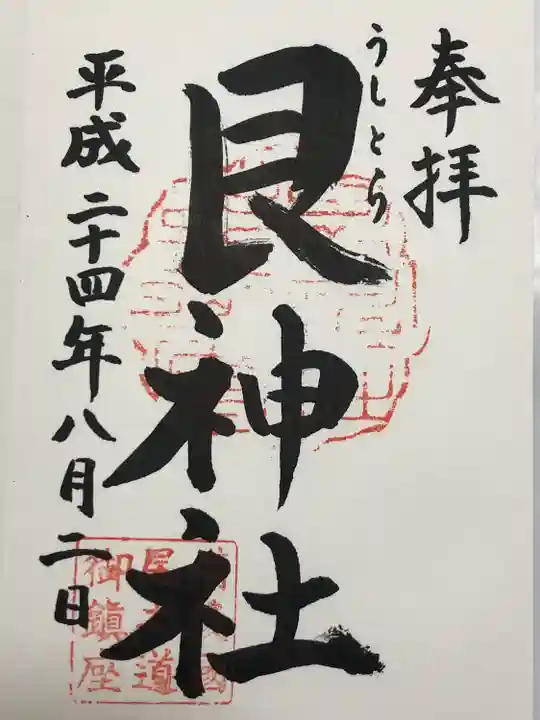 奉拝
うしとら
艮神社
平成二十四年八月二日
御鎮座